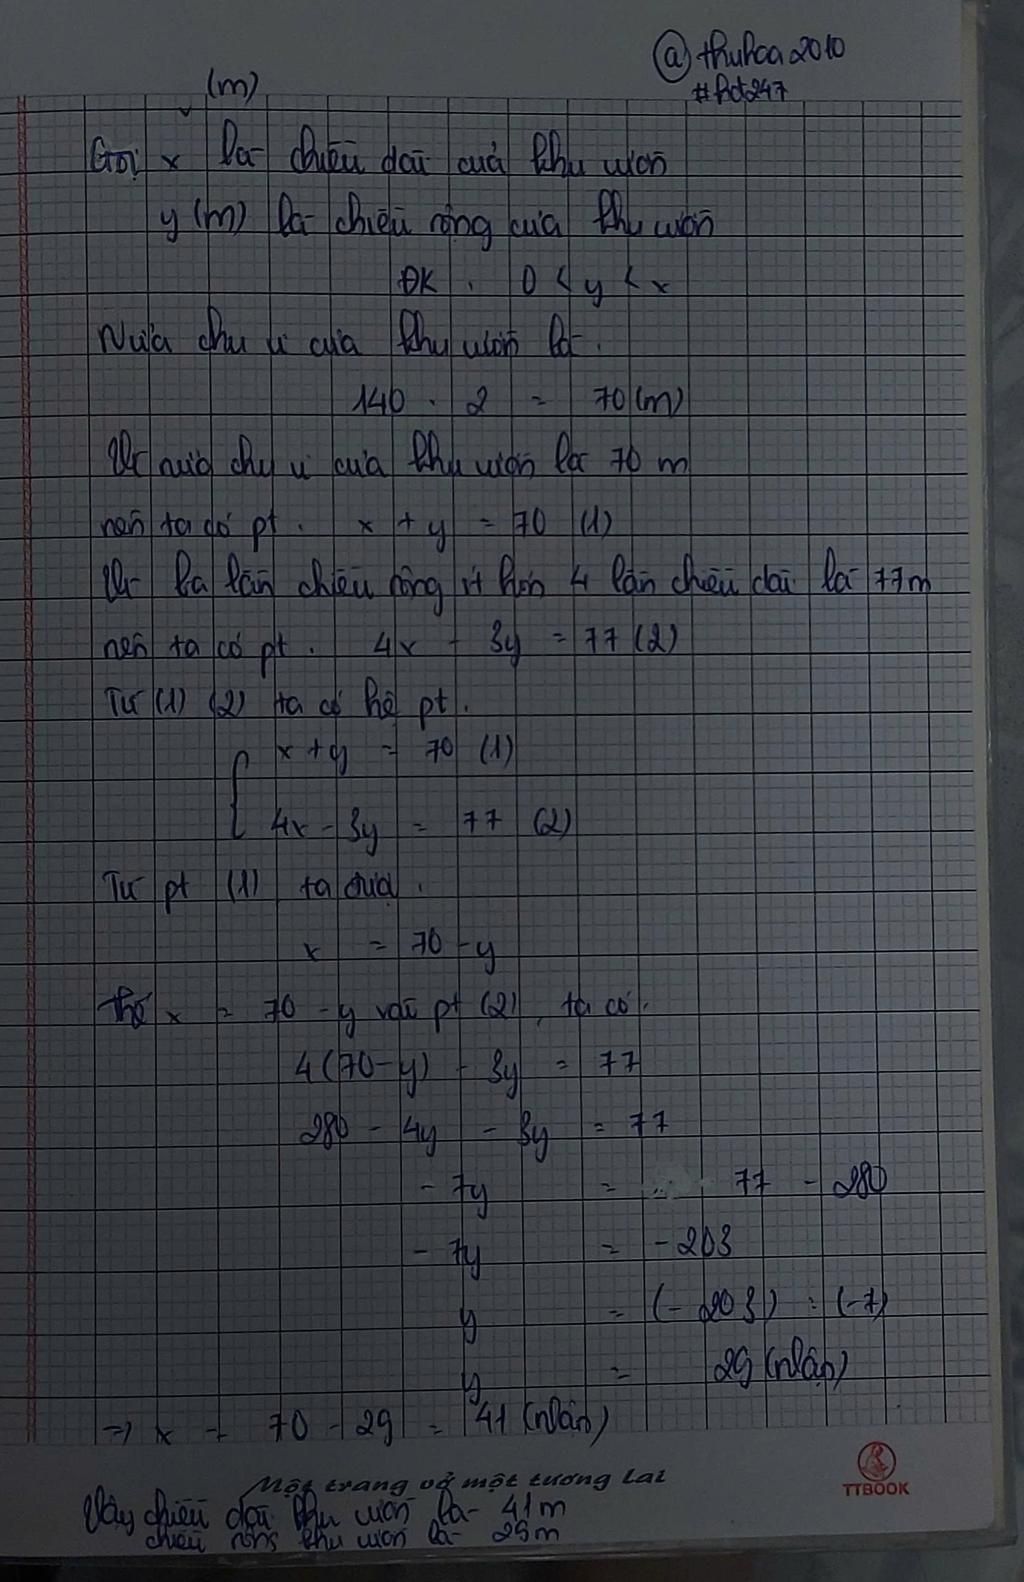 @thuhoa2010
#hdt247
(m)
Gọi x là chiều dài của khu vườn
y (m) là chiều rộng của khu vườn
ĐK: 0 < y < x
Nửa chu vi của khu vườn là:
140 : 2 = 70 (m)
Vì nửa chu vi của khu vườn là 70 m
nên ta có pt: x + y = 70 (1)
Vì ba lần chiều rộng ít hơn 4 lần chiều dài là 77m
nên ta có pt: 4x - 3y = 77 (2)
Từ (1) (2) ta có hệ pt:
x + y = 70 (1)
4x - 3y = 77 (2)
Từ pt (1) ta được:
x = 70 - y
Thế x = 70 - y vào pt (2), ta có:
4(70 - y) - 3y = 77
280 - 4y - 3y = 77
- 7y = 77 - 280
- 7y = - 203
y = (- 203) : (-7)
y = 29 (nhận)
=> x = 70 - 29 = 41 (nhận)
Một trang vở một tương lai
TTBOOK
Vậy chiều dài khu vườn là 41m
chiều rộng khu vườn là 29m